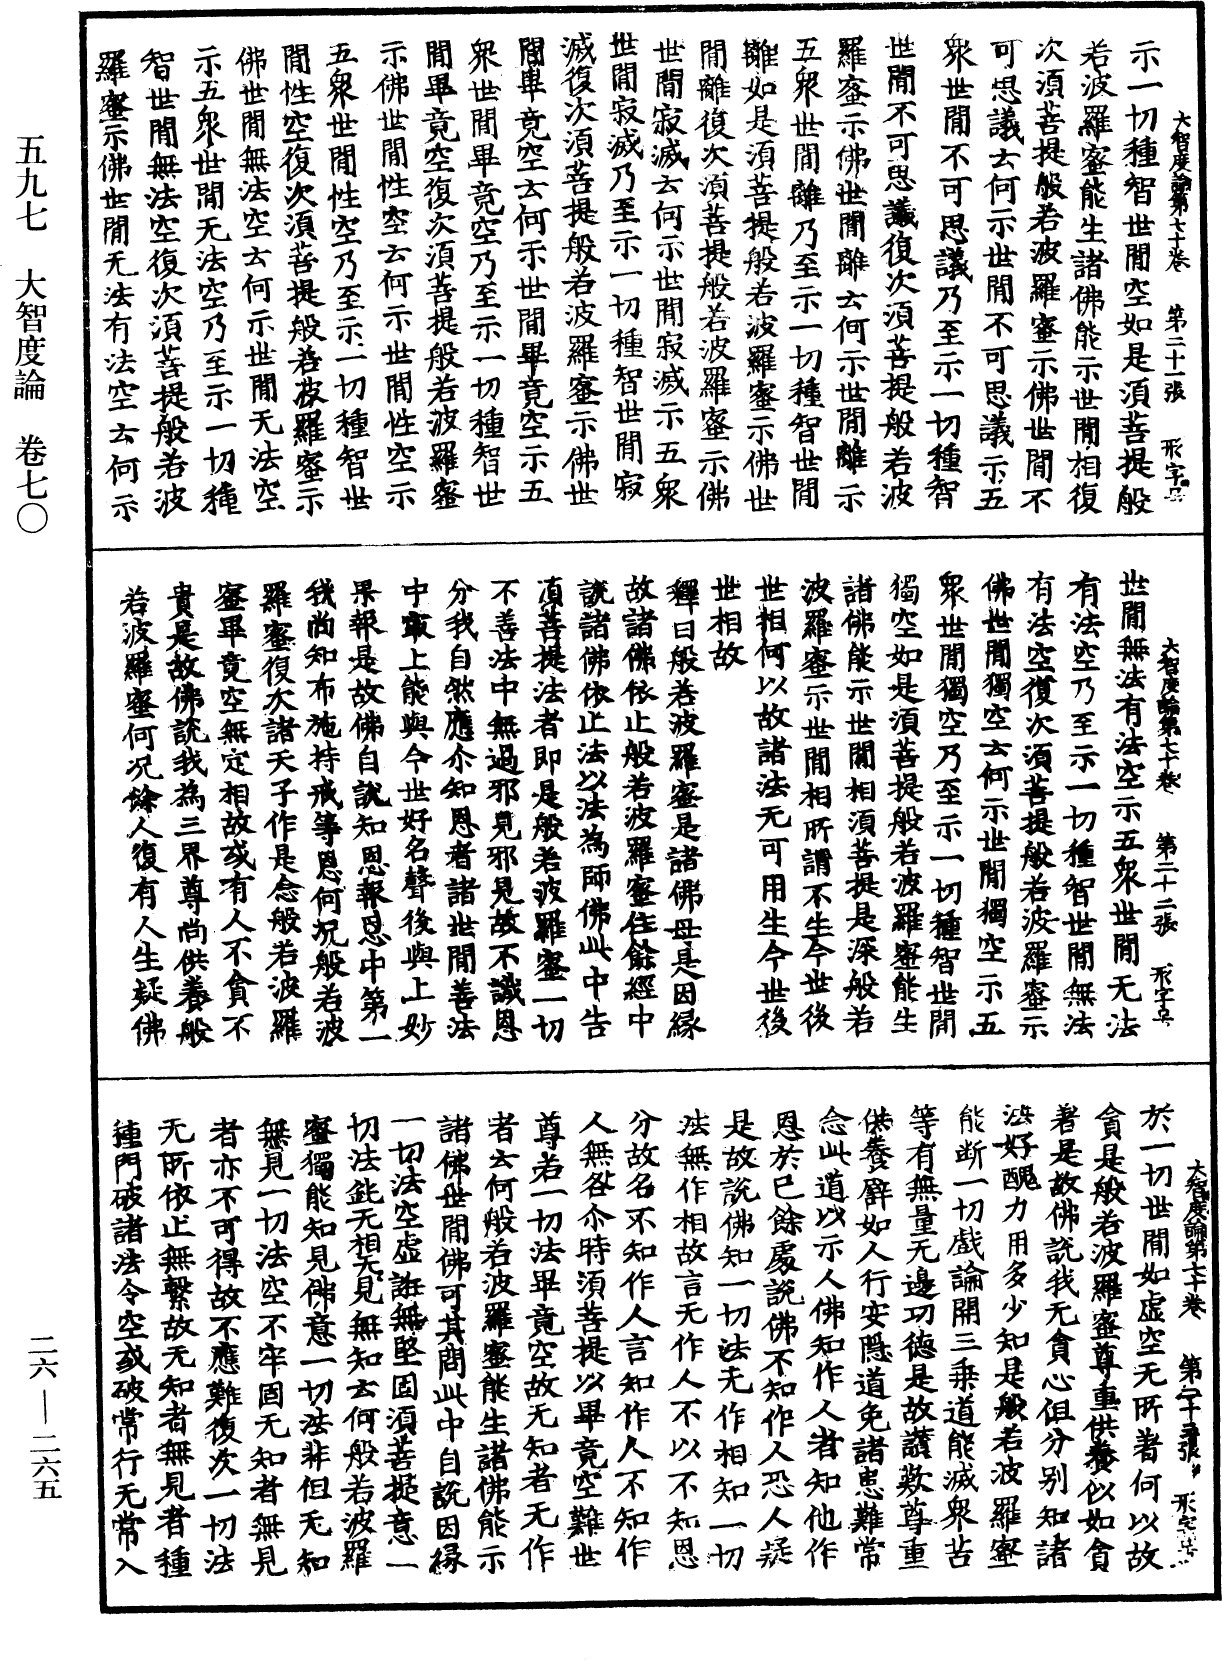 大智度論第七十卷　第二十一張　形字号
示一切種智世間空如是須菩提般
若波羅蜜能生諸佛能示世間相復
次須菩提般若波羅蜜示佛世間不
可思議云何示世間不可思議示五
衆世間不可思議乃至示一切種智
世間不可思議復次須菩提般若波
羅蜜示佛世間離云何示世間離示
五衆世間離乃至示一切種智世間
離如是須菩提般若波羅蜜示佛世
間離復次須菩提般若波羅蜜示佛
世間寂滅云何示世間寂滅示五衆
世間寂滅乃至示一切種智世間寂
滅復次須菩提般若波羅蜜示佛世
間畢竟空云何示世間畢竟空示五
衆世間畢竟空乃至示一切種智世
間畢竟空復次須菩提般若波羅蜜
示佛世間性空云何示世間性空示
五衆世間性空乃至示一切種智世
間性空復次須菩提般若波羅蜜示
佛世間無法空云何示世間无法空
示五衆世間无法空乃至示一切種
智世間無法空復次須菩提般若波
羅蜜示佛世間无法有法空云何示
大智度論第七十卷　第二十二張　形字号
世間無法有法空示五衆世間无法
有法空乃至示一切種智世間無法
有法空復次須菩提般若波羅蜜示
佛世間獨空云何示世間獨空示五
衆世間獨空乃至示一切種智世間
獨空如是須菩提般若波羅蜜能生
諸佛能示世間相須菩提是深般若
波羅蜜示世間相所謂不生今世後
世相何以故諸法无可用生今世後
世相故
釋曰般若波羅蜜是諸佛母是因緣
故諸佛依止般若波羅蜜住餘經中
說諸佛依止法以法為師佛此中告
須菩提法者即是般若波羅蜜一切
不善法中無過邪見邪見故不識恩
分我自然應尒知恩者諸世間善法
中㝡上能與今世好名聲後與上妙
果報是故佛自說知恩報恩中第一
我尚知布施持戒等恩何況般若波
羅蜜復次諸天子作是念般若波羅
蜜畢竟空無定相故或有人不貪不
貴是故佛說我為三界尊尚供養般
若波羅蜜何況餘人復有人生疑佛
大智度論第七十卷　第二十三張　形字号
於一切世間如虛空无所著何以故
貪是般若波羅蜜尊重供養似如貪
著是故佛說我无貪心但分別知諸
法好醜力用多少知是般若波羅蜜
能斷一切戲論開三乘道能滅衆苦
等有無量无邊功德是故讚歎尊重
供養譬如人行安隱道免諸患難常
念此道以示人佛知作人者知他作
恩於已餘處說佛不知作人恐人疑
是故說佛知一切法无作相知一切
法無作相故言无作人不以不知恩
分故名不知作人言知作人不知作
人無咎尒時須菩提以畢竟空難世
尊若一切法畢竟空故无知者无作
者云何般若波羅蜜能生諸佛能示
諸佛世間佛可其問此中自說因緣
一切法空虛誑無堅固須菩提意一
切法鈍无相无見無知云何般若波羅
蜜獨能知見佛意一切法非但无知
無見一切法空不牢固无知者無見
者亦不可得故不應難復次一切法
无所依止無繫故无知者無見者種
種門破諸法令空或破常行无常入
五九七　大智度論　卷七〇
二六—二六五